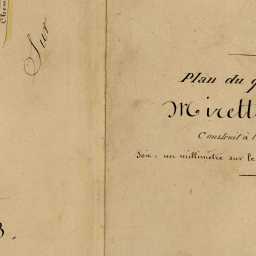 Chem
Sur
Plan du q
Mirett
Construit à l
Soit, un millimètre sur le